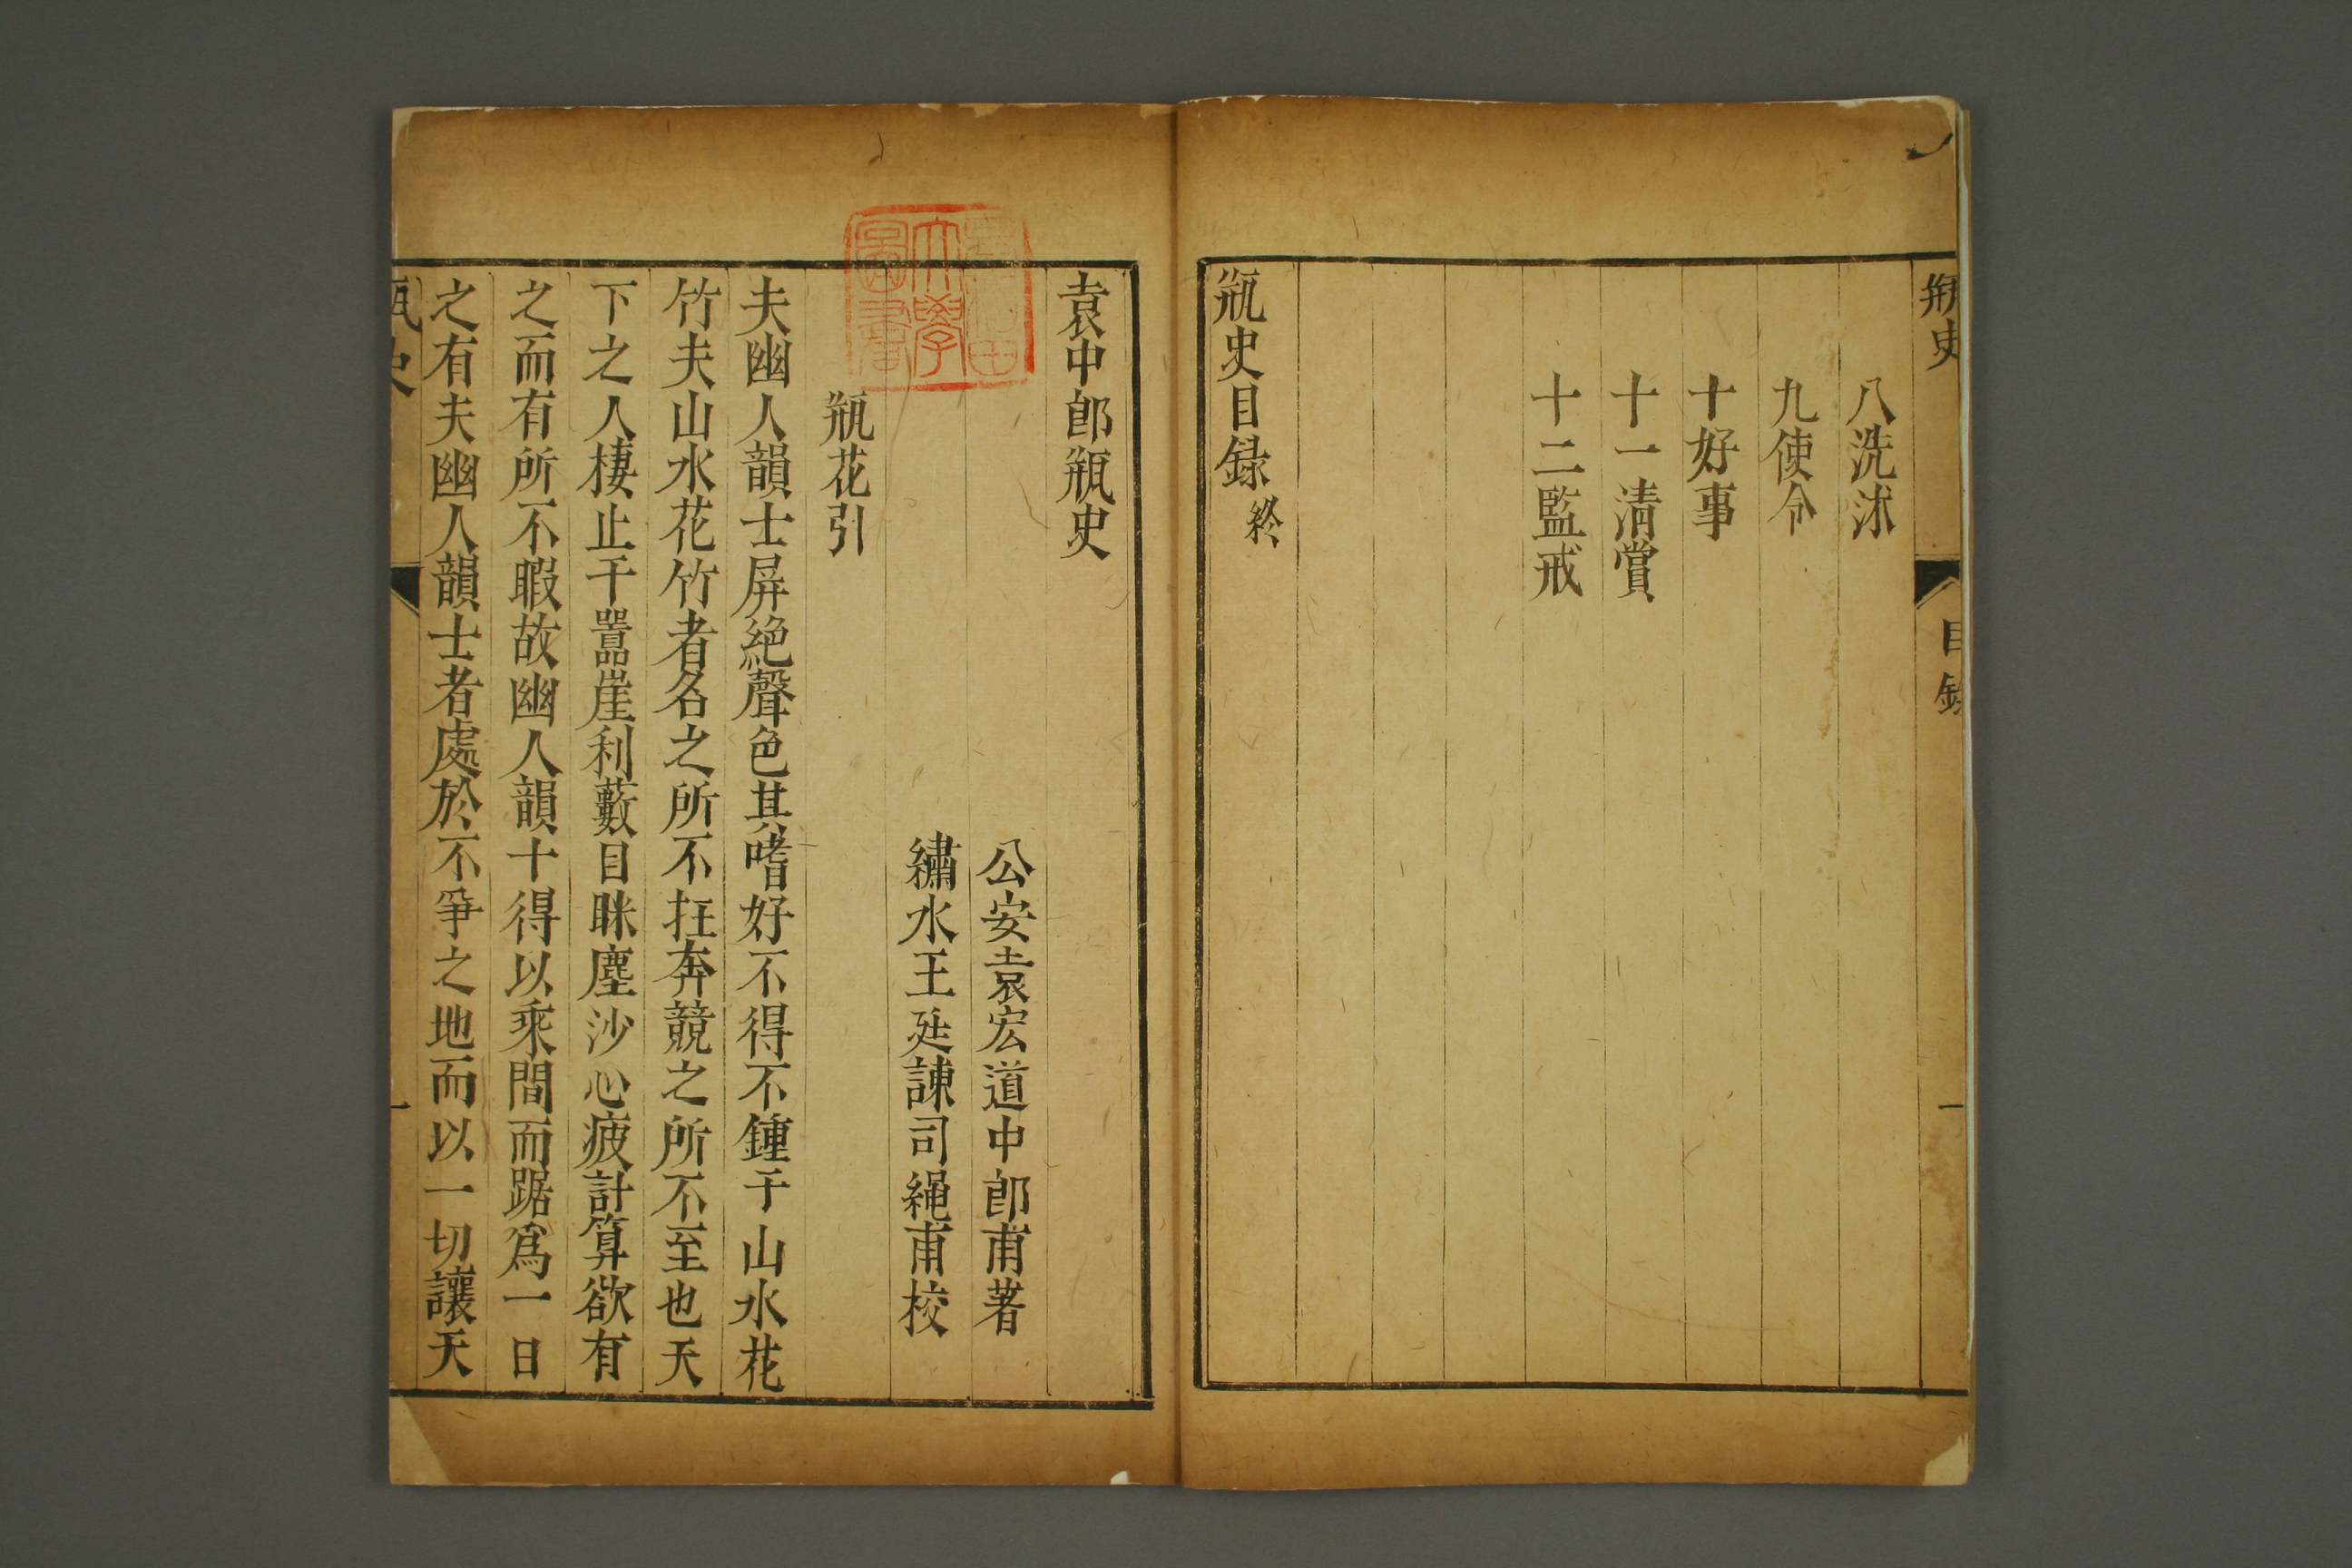 瓶史
目録
一
八洗沐
九使令
十好事
十一清賞
十二監戒
瓶史目録終
袁中郎瓶史
公安袁宏道中郎甫著
繡水王廷諫司繩甫校
瓶花引
夫幽人韻士屏絶聲色其嗜好不得不鍾于山水花
竹夫山水花竹者名之所不在奔競之所不至也天
下之人棲止于嚻崖利藪目眯塵沙心疲計算欲有
之而有所不暇故幽人韻士得以乘間而踞爲一日
之有夫幽人韻士者處於不爭之地而以一切讓天
瓶史
一